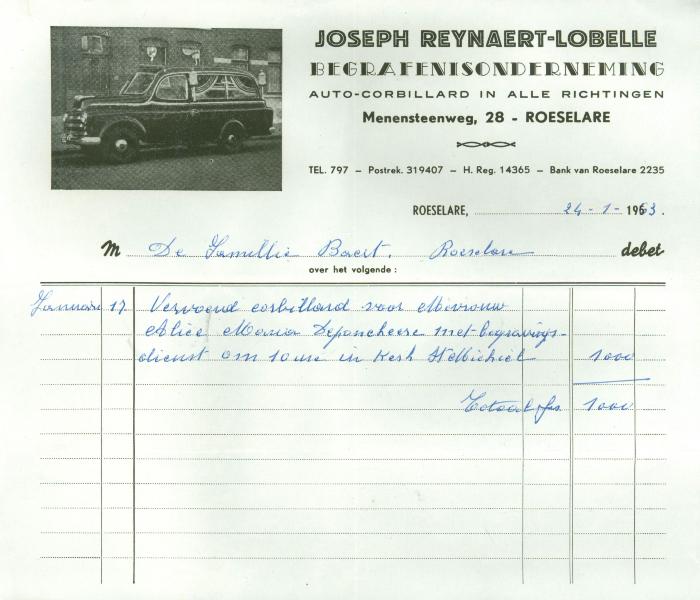 JOSEPH REYNAERT-LOBELLE
BEGRAFENISONDERNEMING
AUTO-CORBILLARD IN ALLE RICHTINGEN
Menensteenweg, 28 - ROESELARE
TEL. 797 – Postrek. 319407 – H. Reg. 14365 – Bank van Roeselare 2235
ROESELARE, 24-1-1963.
M De Familie Baert. Roeselare debet
over het volgende :
Januari 17 Vervoerd corbillard voor Mevrouw
Alice Maria Deponcheere met begravings-
dienst om 10 ure in Kerk St Michiel 1000
Totaal frs 1000